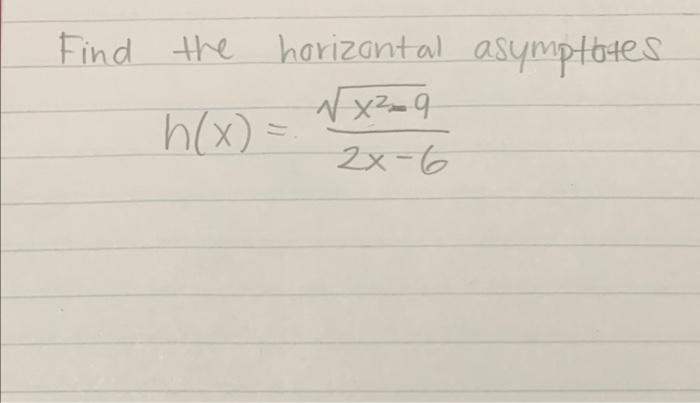 Find the horizontal asymptotes
h(x) = √x²-9 / 2x-6